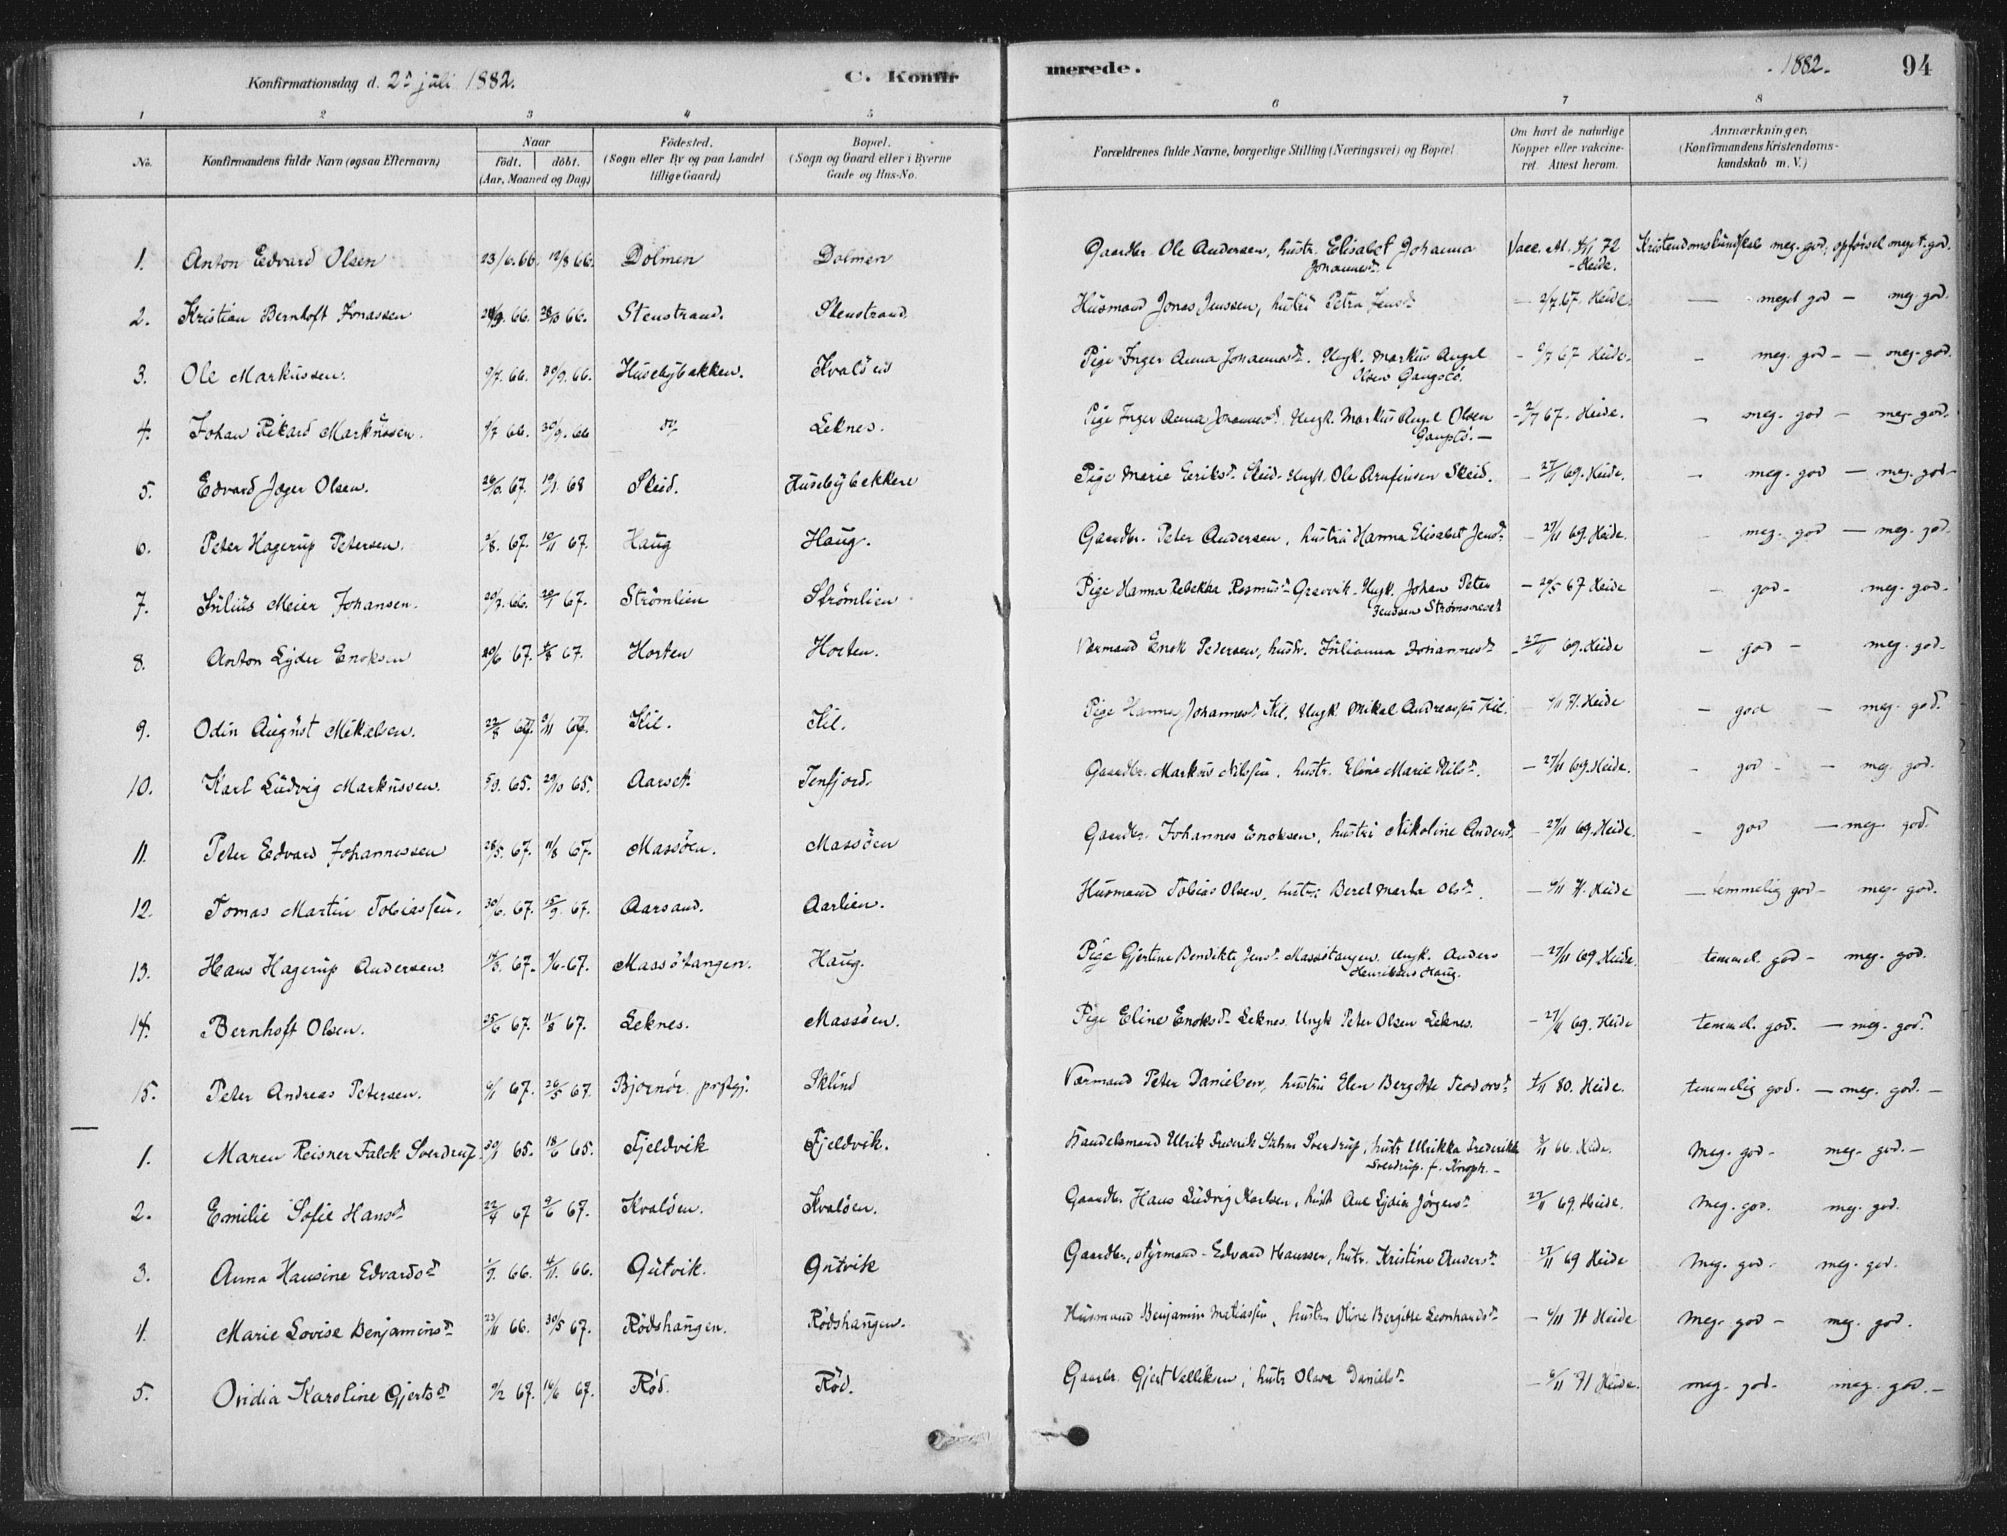 Konfirmationsdag d. 2 juli 1882. C. Konfirmerede. 1882. 94
1 2 3 4 5 6 7 8
No. Konfirmandens fulde Navn (ogsaa Efternavn) Naar født. døbt. (Aar, Maaned og Dag) Fødested. (Sogn eller By og paa Landet tillige Gaard) Bopæl. (Sogn og Gaard eller i Byerne Gade og Hus-No. Forældrenes fulde Navne, borgerlige Stilling (Næringsvei) og Bopæl Om havt de naturlige Kopper eller vakcineret. Attest herom. Anmærkninger. (Konfirmandens Kristendomskundskab m. V.)
1. Anton Edvard Olsen 23/6.66. 12/8 66. Dolmen Dolmen Gaardbr. Ole Andersen, hustr. Elisabet Johanna Johannesd. Vacc. At. 72 Heide. Kristendomskundskab meg. god, opførsel meget god.
2. Kristian Bernhoft Jonassen 66. 66. Stenstrand. Stenstrand. Husmand Jonas Jenssen, hustru Petra Jensd. — 2/7.67. Heide. — meget god — meg. god.
3. Ole Markussen. 9/7. 66. 30/9. 66. Husebybakken. Kvaløen Pige Inger Anna Johannesd. Ungk. Markus Angel Olsen - 2/7 67 Heide. - meg. god - - meg. god.
4. Johan Rikard Markussen. 9/7 66. 30/9. 66 Leknes. Pige Inger Anna Johannesd. Ungk. Markus Angel Olsen - 2/7 67. Heide. - meg. god - meg. god.
5. Edvard Jøger Olsen. 67. 68 Skeid. Husebybakken Pige Marie Eeriksd. Skeid. Ungk. Ole Arnfinsen Skeid. - 27/11 69. Heide. - meg. god - meg. god.
6. Peter Hagerup Petersen. 67. 10/11 67. Haug Haug. Gaardbr. Peter Andersen, hustru Hanna Elisabet Jensd. - 27/11 69. Heide. - meg. god - meg. god.
7. Julius Meier Johansen. 66. 67. Strömlien Strömlien Pige Hanna Rebekka Rasmusd. Grevvik. Ungk. Johan Peter Jenssen Strömsneset - 29/5 67 Heide - god - meg. god.
8. Anton Lyder Enoksen 20/6 67. 67. Horten Horten. Værmand Enok Pedersen, hustr. Julianna Johannesd. - 27/11 69. Heide - god - meg. god.
9. Odin August Mikalsen. Kil. Kil. Pige Hanna Johannesd. Kil, Ungk. Mikal Andreassen Kil. 71. Heide - god - meg. god.
10. Karl Ludvig Markussen. 65. 29/10 65. Aarset Tenfjord. Gaardbr. Markus Nilssen, hustr. Eline Marie Nilsd. - 27/11 69. Heide. - god - - meg. god.
11. Peter Edvard Johannessen 28/5. 67. 11/8 67. Massöen. Massöen Gaardbr. Johannes Enoksen, hustru Nikoline Andersd. - 27/11 69. Heide. - god - meg. god.
12. Tomas Martin Tobiassen. 30/6. 67. 15/9. 67. Aarsand. Aarlien. Husmand Tobias Olsen, hustru Beret Marta Olsd. - 71. Heide - temmelig god - meg. god.
13. Hans Hagerup Andersen. 67. 67. Massötangen. Haug. Pige Gjertine Bendikte Jensd. Massötangen. Ungk. Anders Henriksen Haug. - 27/11 69 Heide. temmel. god - meg. god.
14. Bernhoft Olsen. 25/6 67. 11/8 67. Leknes. Massöen. Pige Eline Enoksd. Leknes. Ungk. Peter Olsen Leknes. - 27/11 69. Heide temmel. god. - meg. god.
15. Peter Andreas Petersen. 67. 26/5 67. Bjørnør. prstgj. Sklind Værmand Peter Danielsen, hustru Elen Bergitte Teodorsd. 80. Heide. temmelig god. - meg. god. -
1. Maren Reisner Falck Sverdrup. 65. 18/6 65. Fjeldvik Fjeldvik. Handelsmand Ulrik Frederik Suhm Sverdrup, hustr. Ulrikke Frederikke Sverdrup. f. Knoph. - 66. Heide. Meg. god - meg. god. -
2. Emilie Sofie Hansd. 22/4 67 9/6 67. Kvaløen. Kvaløen. Gaardbr. Hans Ludvig Karlsen, hustr. Ane Lydia Jörgensd. 27/11 69. Heide. Meg. god. meg. god.
3. Anna Hansine Edvardsd. 66. 66. Gutvik. Gutvik Gaardbr., styrmand Edvard Hanssen, hustr. Kristine Andersd. 27/11 69 Heide Meg. god - meg. god.
4. Marie Lovise Benjaminsd. 23/11 66. 30/5 67. Rödshaugen. Rödshaugen. Husmand Benjamin Matiassen, hustru Oline Bergitte Leonhardsd. - 71 Heide Meg. god - meg. god.
5. Ovidia Karoline Gjertsd. 9/2 67. 16/6 67. Rød. Rød. Gaardbr. Gjert Vellksen, hustr. Olava Danielsd. - 71 Heide. meg. god - meg. god. -